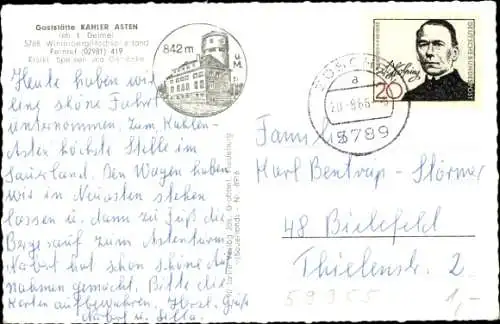 Gaststätte KAHLER ASTEN
5789 Winterberg/Hochsauerland
Fernruf (02981) 419
842 m
ü. M.
Heute haben wir
eine schöne Fahrt
unternommen. Zum Kahlen-
Asten höchste Stelle im
Sauerland. Den Wagen haben
wir in Neuasten stehen
lassen u. dann zu Fuß die
Berge rauf zum Astenturm.
hat schon schöne
nahmen gemacht. Bitte die
Karten aufbewahren. Herzl. Grüße
DEUTSCHE BUNDESPOST
Adolf Kolping
20
a
5789
Familie
Karl Bentrup-Störmer
48 Bielefeld
Thielenstr. 2
59355
1,-